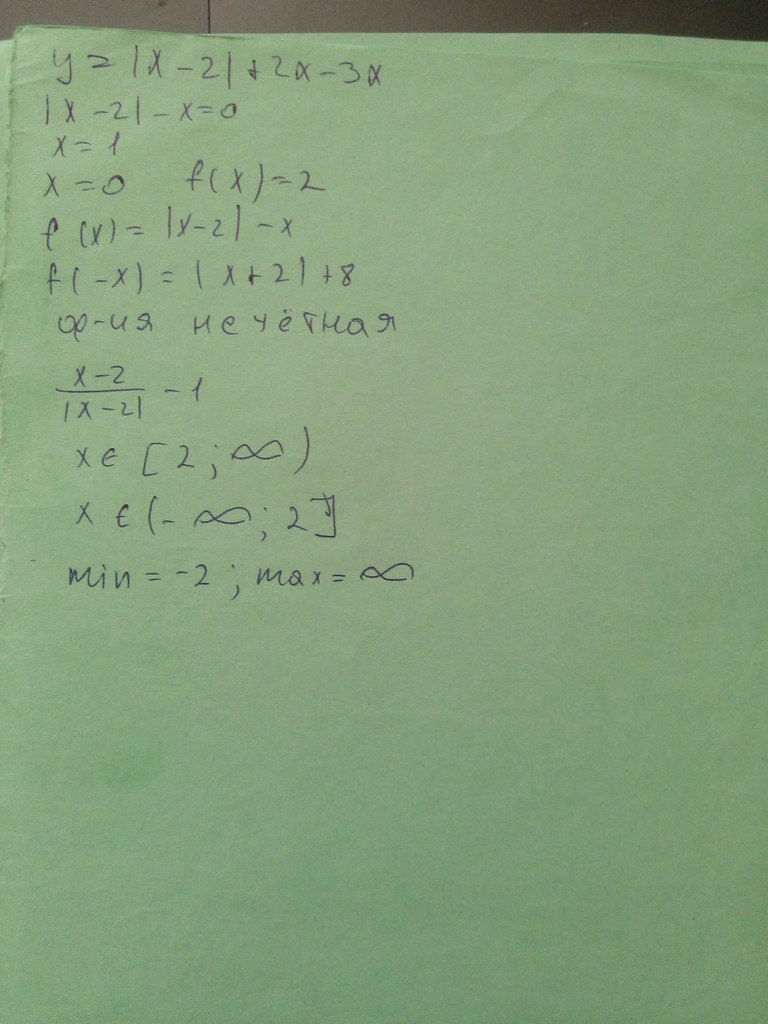 y = |x - 2| + 2x - 3x
|x - 2| - x = 0
x = 1
x = 0 f(x) = 2
f(x) = |x-2| - x
f(-x) = |x+2| + 8
ф-ия нечётная
x-2 / |x-2| - 1
x ∈ [2; ∞)
x ∈ (-∞; 2]
min = -2; max = ∞